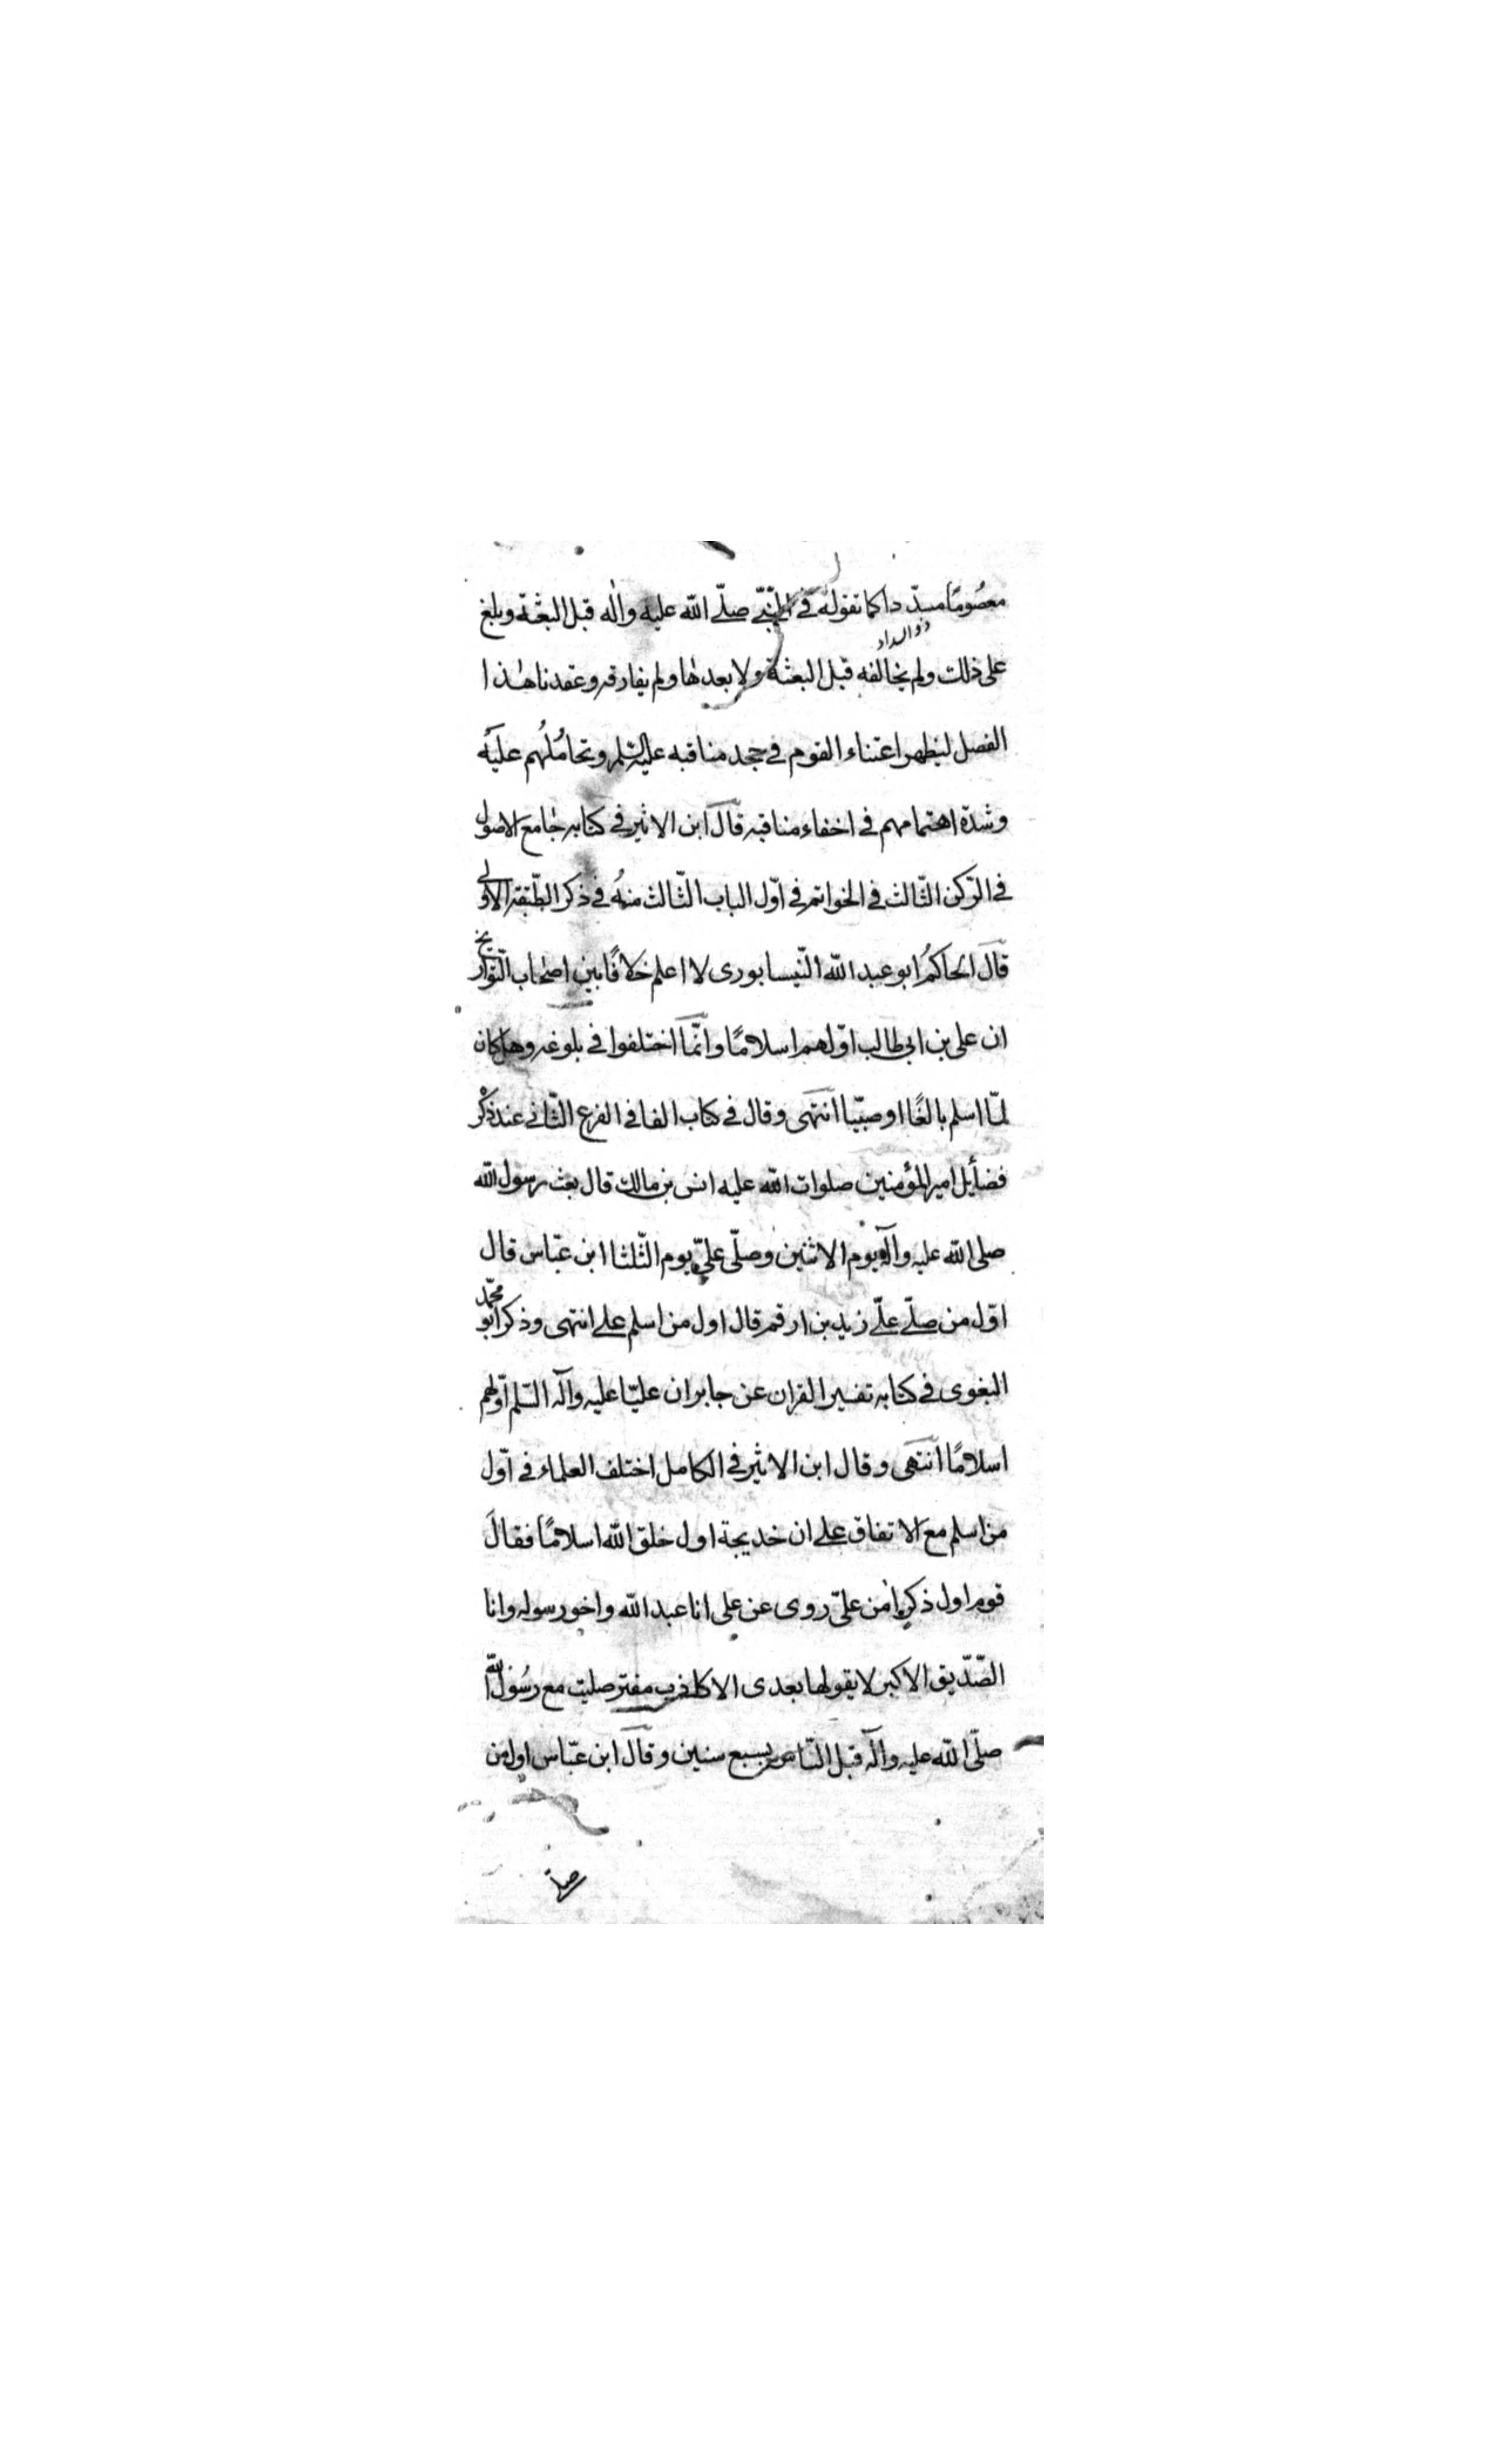 معصُومًا مسدّدا كما نقوله فى النّبىّ صلّى الله عليه واٰله قبل البعثة وبلغ
على ذلك ولم يخالفه قبل البعثة ولا بعدها ولم يفارقه وعقدنا هٰذا
الفصل ليظهر اعتناء القوم فى جحد مناقبه عليه السّلم وتحامُلُهم عليَه
وشدّة اهتمامهم فى اخفاء مناقبه قال ابن الاثير فى كتابه جٰامع الاصول
فى الرّكن الثّالث فى الخواتم فى اوّل الباب الثّالث منهُ فى ذكر الطّبقة الاولى
قال الحاكمُ ابو عبد الله النّيسابورى لا اعلم خلافًا بين اصحٰاب التّواريخ
ان على بن ابى طالب اوّلهم اسلامًا وانّما اختلفوا فى بلوغه وهل كان
لمّا اسلم بالغًا او صبيّا انتهى وقال فى كتاب الفا فى الفرع الثّانى عند ذكْر
فضائل امير المؤمنين صلوات الله عليه انس بن مالك قال بعث رسول الله
صلى الله عليه وآله يوم الاثنين وصلّى علىّ يوم الثّلثا ابن عبّاس قال
اوّل من صلّى علىّ زيد بن ارقم قال اول من اسلم على انتهى وذكر ابو محمّد
البغوى فى كتابه تفسير القران عن جابر ان عليّا عليه وآله السّلم اوّلهم
اسلامًا انتهى وقال ابن الاثير فى الكامل اختلف العلماء فى اوّل
من اسلم مع الاتفاق على ان خديجة اول خلق الله اسلامًا فقال
قوم اول ذكر اٰمن علىّ روى عن على انا عبد الله واخو رسوله وانا
الصّدّيق الاكبر لا يقولها بعدى الا كاذب مفتر صليت مع رسُول الله
صلّى الله عليه وآله قبل النّاس بسبع سنين وقال ابن عبّاس اول من
صلى